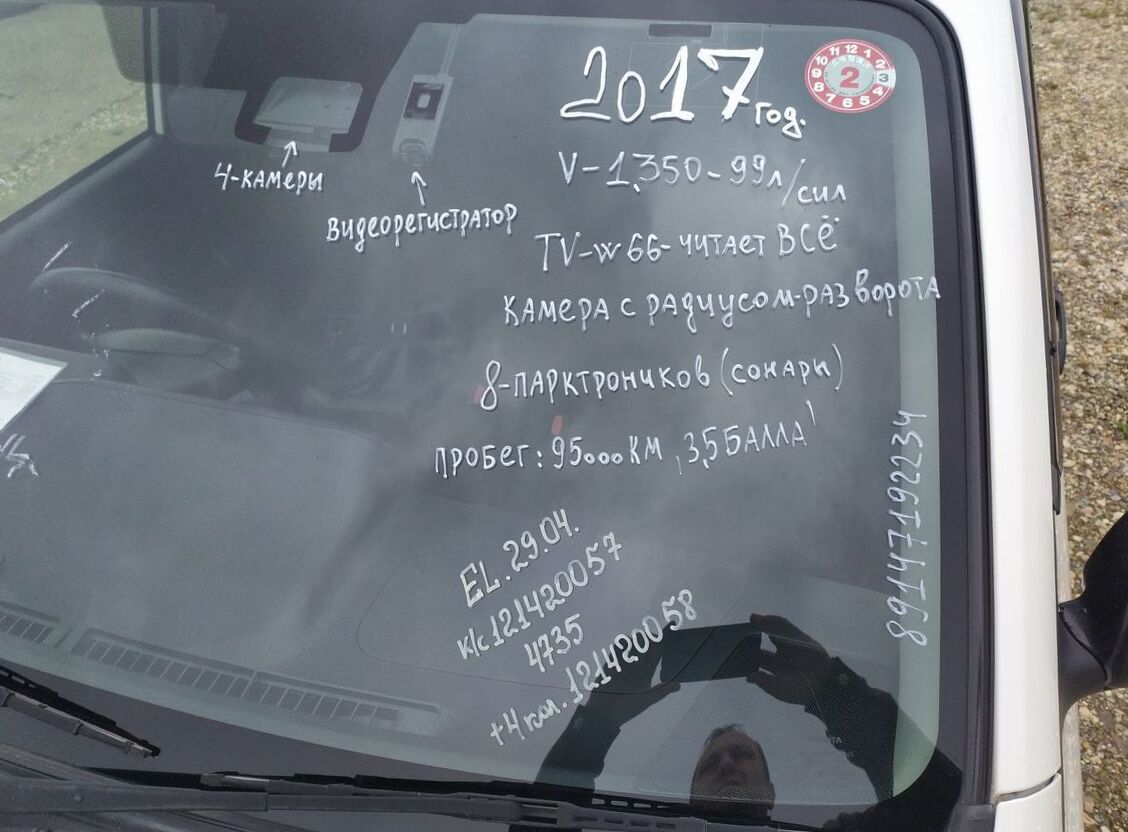 2017 год.
V-1,350-99л/сил
TV-w66-читает ВСЁ
КАМЕРА С РАДИУСОМ-РАЗВОРОТА
8-ПАРКТРОНИКОВ (СОНАРЫ)
ПРОБЕГ: 95000КМ, 3,5 БАЛЛА
4-КАМЕРЫ
ВИДЕОРЕГИСТРАТОР
EL. 29.04.
к/с 121420057
4735
+4 кол. 121420058
89147192234
10 11 12 1 2 3 4 5 6 7 8 9
2